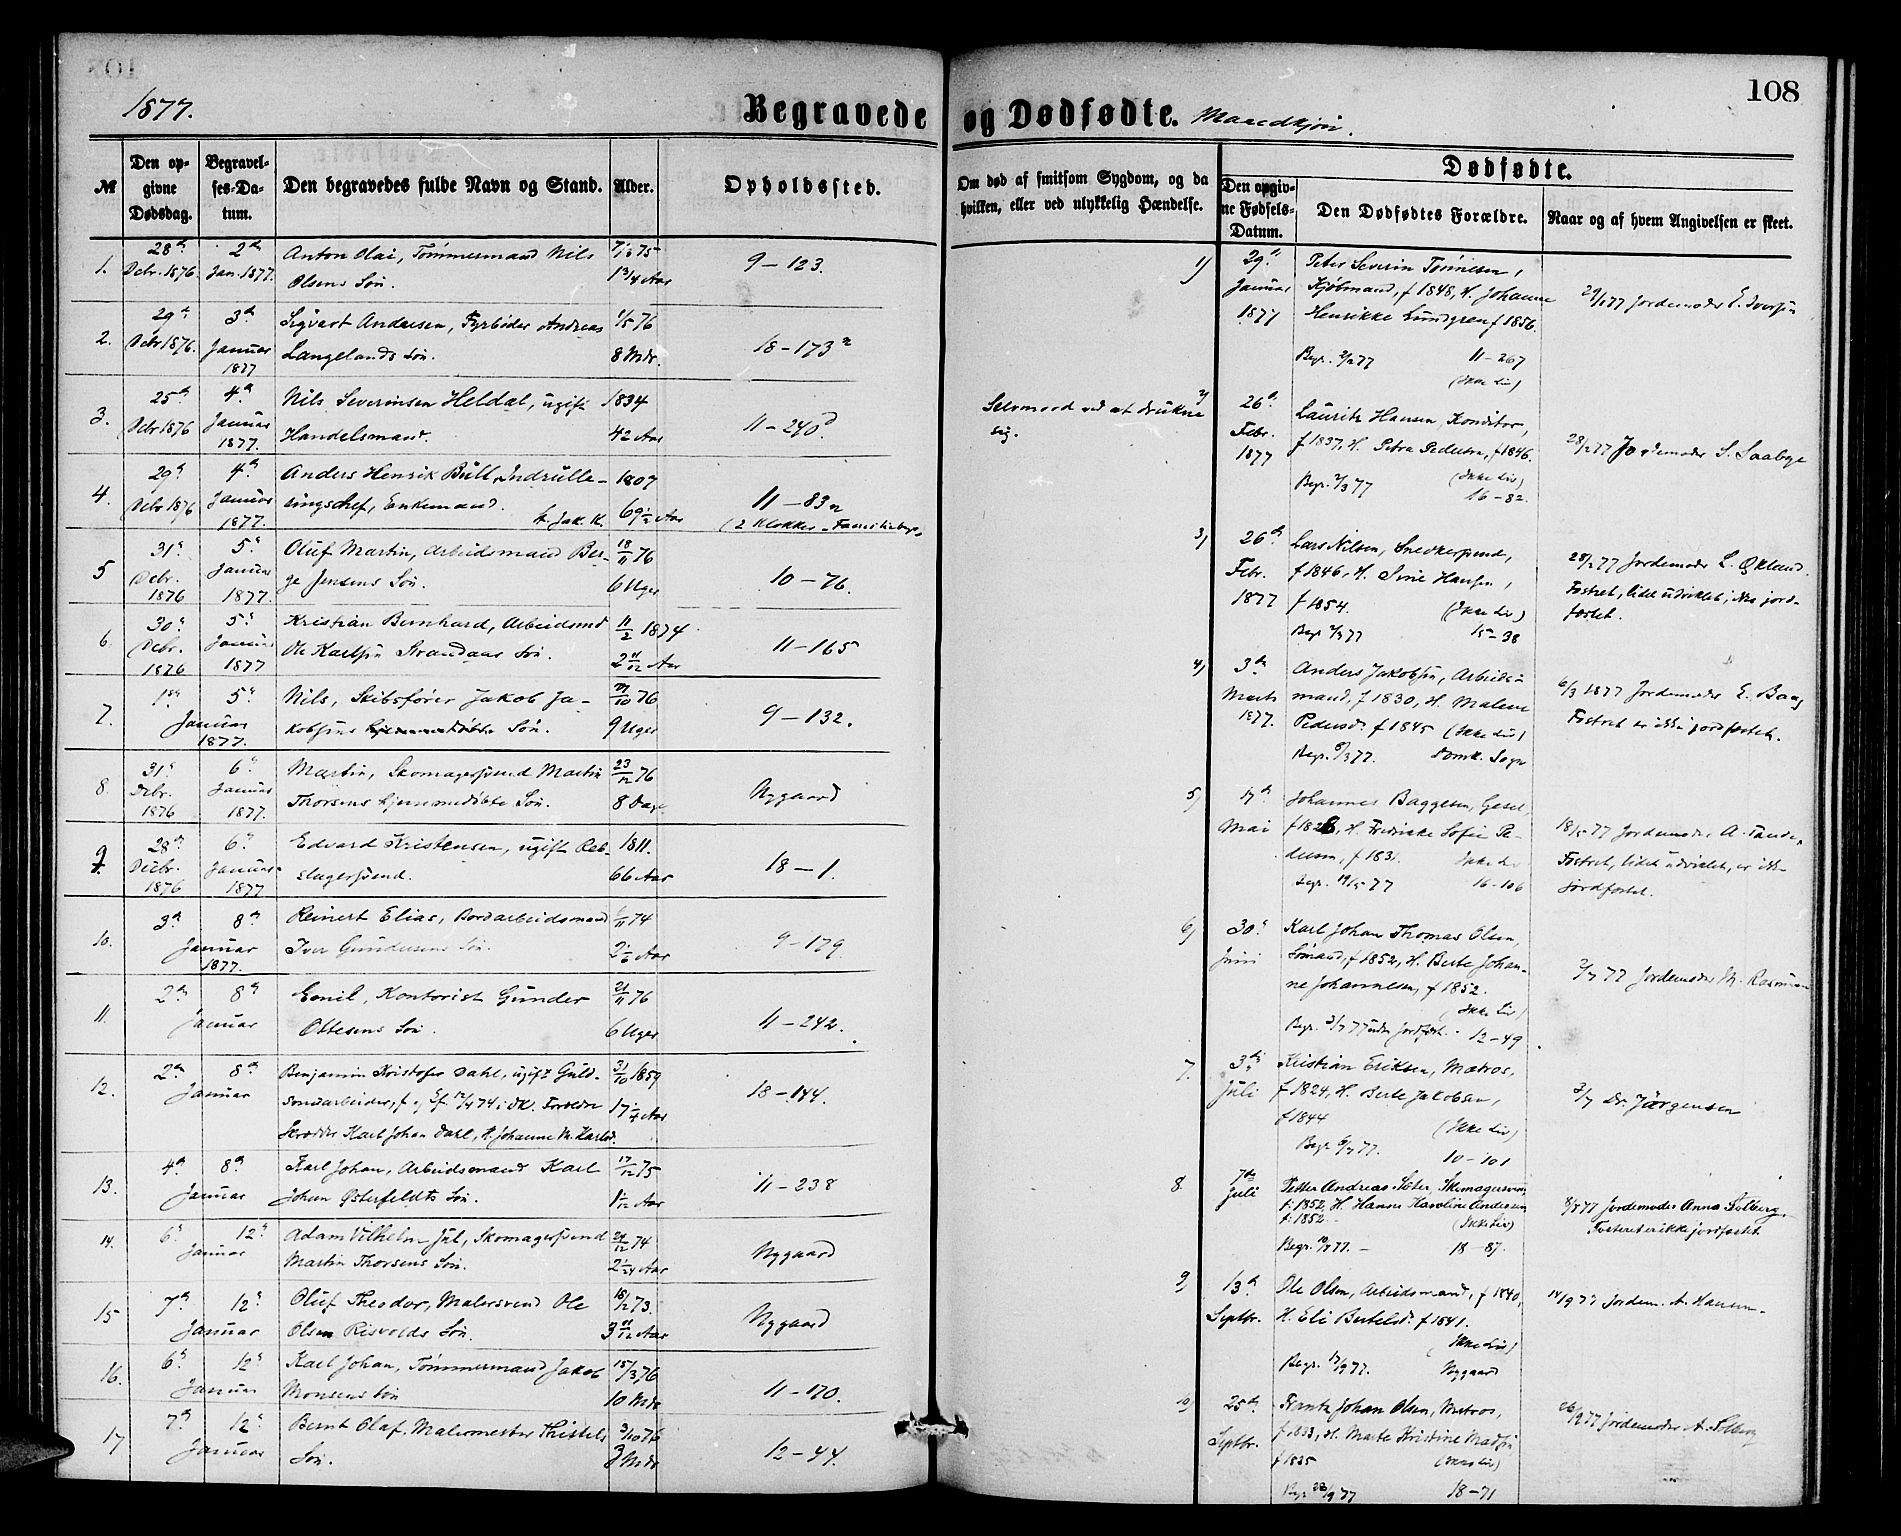 108
1877.
Begravede og Dødfødte. Mandkjøn.
№
Den opgivne Dødsdag.
Begravelses-Datum.
Den begravedes fulde Navn og Stand.
Alder.
Opholdssted.
Om død af smitsom Sygdom, og da
hvilken, eller ved ulykkelig Hændelse.
Dødfødte.
Den opgivne Fødsels-Datum.
Den Dødfødtes Forældre.
Naar og af hvem Angivelsen er skeet.
1. 28de Decbr. 1876. 2den Jan. 1877. Anton Olai, Tømmermand Nils
Olsens Søn. 1 3/4 Aar 9-123.
2. 29de Decbr 1876. 3de Januar 1877 Sigvart Andersen, Fyrbøder Andreas
Langelands Søn. 1/5 76 8 Mdr. 18-173
3. 25de Decbr 1876 4de Januar 1877. Nils Severinsen Heldal, ugift
Handelsmand. 1834 42 Aar 11-240
Selvmord ved at drukne
sig.
4. 29de Decbr 1876 4de Januar 1877. Anders Henrik Bull, Indrulle-
ringschef, Enkemand. 1807 69 1/2 Aar 11-83
(2 Klokker
5 31te Decbr. 1876 5te Januar 1877. Oluf Martin, Arbeidsmand Ber-
ge Jensens Søn. 18/11 76 6 Uger 10-76.
6. 30te Decbr. 1876 5te Januar 1877 Kristian Bernhard, Arbeidsmd
Ole Karlsen Strandaas Søn. 11/2 1874 2 11/12 Aar 11-165
7. 1ste 5te Januar 1877. Nils, Skibsfører Jakob Ja-
kobsens Søn. 76 9 Uger 9-132.
8. 31te Decbr. 1876 6te Januar 1877. Martin, Skomagersvend Martin
Thorsens hjemmedøbte Søn. 23/12 76 8 Dage Nygaard
9. 28de Decbr. 1876 6te Januar 1877 Edvard Kristensen, ugift Reb-
slagersvend. 1811. 66 Aar 18-1.
10. 3de 8de Januar 1877. Reinert Elias, Bordarbeidsmand
Iver Gundersens Søn. 74 2 1/6 Aar 9-179
11. 2den 8de Januar Emil, Kontorist Gunder
Ottesens Søn. 21/11 76 6 Uger 11-242.
12. 2den 8de Januar Benjamin Kristofer Dahl, ugift Guld-
smedarbeider, Forældre
Skrædder Karl Johan Dahl, H. Johanne M. Karlsd. 31/10 1859 17 1/4 Aar 18-144.
13. 4de 8de Januar Karl Johan, Arbeidsmand Karl
Johan Østerfeldts Søn. 17/12 75 1 1/12 Aar 11-238
14. 6te 12te Januar Adam Vilhelm Jul, Skomagersvend
Martin Thorsens Søn. 74 2 1/24 Aar Nygaard
15 7de 12te Januar Oluf Theodor, Malersvend Ole
Olsen Risvolds Søn. 73. 3 11/12 Aar Nygaard
16. 6te 12te Januar Karl Johan, Tømmermand Jakob
Monsens Søn 15/3 76 10 Mdr 11-170.
17 7de 12te Januar Bernt Olaf, Malermester Thistels
Søn. 3/10 76 3 Mdr 12-44.
1) 29de Januar 1877 Peter Severin Tønnesen,
Kjøbmand, f 1848, H. Johanne
Henrikke Lundgren f 1856.
Begr. 2/2 77 11-267
(Ikke Liv)
29/1 77 Jordemoder E. Iversen
2) 26de Febr. 1877 Lauritz Hansen, Konditor,
f 1837, H. Petra Pedersen, f 1846.
(Ikke Liv)
Begr. 2/3 77 16-82.
28/2 77 Jordemoder S. Saabye
3) 26de Febr. 1877 Lars Nilsen, Snedkersvend,
f 1846, H. Sine Hansen,
f 1854. (Ikke Liv)
Begr 2/3 77 15-38
28/2 77 Jordemoder L. Økland.
Fostret, lidet udviklet, ikke jord-
fæstet.
4) 3de Marts 1877. Anders Jakobsen, Arbeids-
mand, f 1830, H. Malene
Pedersd. f 1845 (Ikke Liv)
Begr. 8/3 77. Domk. Sogn
6/3 1877 Jordemoder E. Baag
Fostret er ikke jordfæstet.
5) 17de Mai Johannes Baggesen, Gesel,
H. Fredrikke Sofie Pe-
dersen, f 1831. Ikke Liv
Begr. 19/5 77 16-106
18/5 77 Jordemoder A.
Fostret, lidet udviklet, er ikke
jordfæstet.
6) 30te Juni Karl Johan Thomas Olsen,
Sømand, f 1852, H. Berte Johan-
ne Johannesen, f 1852.
(Ikke Liv)
Begr. 3/7 77 uden Jordfæst. 12-49.
2/7 77 Jordemoder M. Rasmussen
7. 3die Juli Kristian Eriksen, Matros,
f 1824, H. Berte Jakobsen,
f 1844 (Ikke Liv)
Begr 6/7 77. 10-101
3/7 Dr. Jørgensen
8. 7de Juli Petter Andreas Sæter, Skomagersvend
f. 1852, H. Hanne Karoline Andersen
f. 1852 (Ikke Liv)
Begr. 10/7 77. 18-87.
8/7 77 Jordemoder Anna Solberg.
Fosteret er ikke jordfæstet
9) 13de Septbr. Ole Olsen, Arbeidsmand, f 1840,
H. Eli Bertelsd. f 1841.
(Ikke Liv)
Begr. 17/9 77. Nygaard
14/9 77 Jordem. A. Hansen
10) 25de Septbr. Johan Olsen, Matros,
f 1833, H. Marte Kristine Madsen
f 1835 (Ikke Liv)
Begr 28/9 77 18-71
26/9 77 Jordemoder A. Solberg